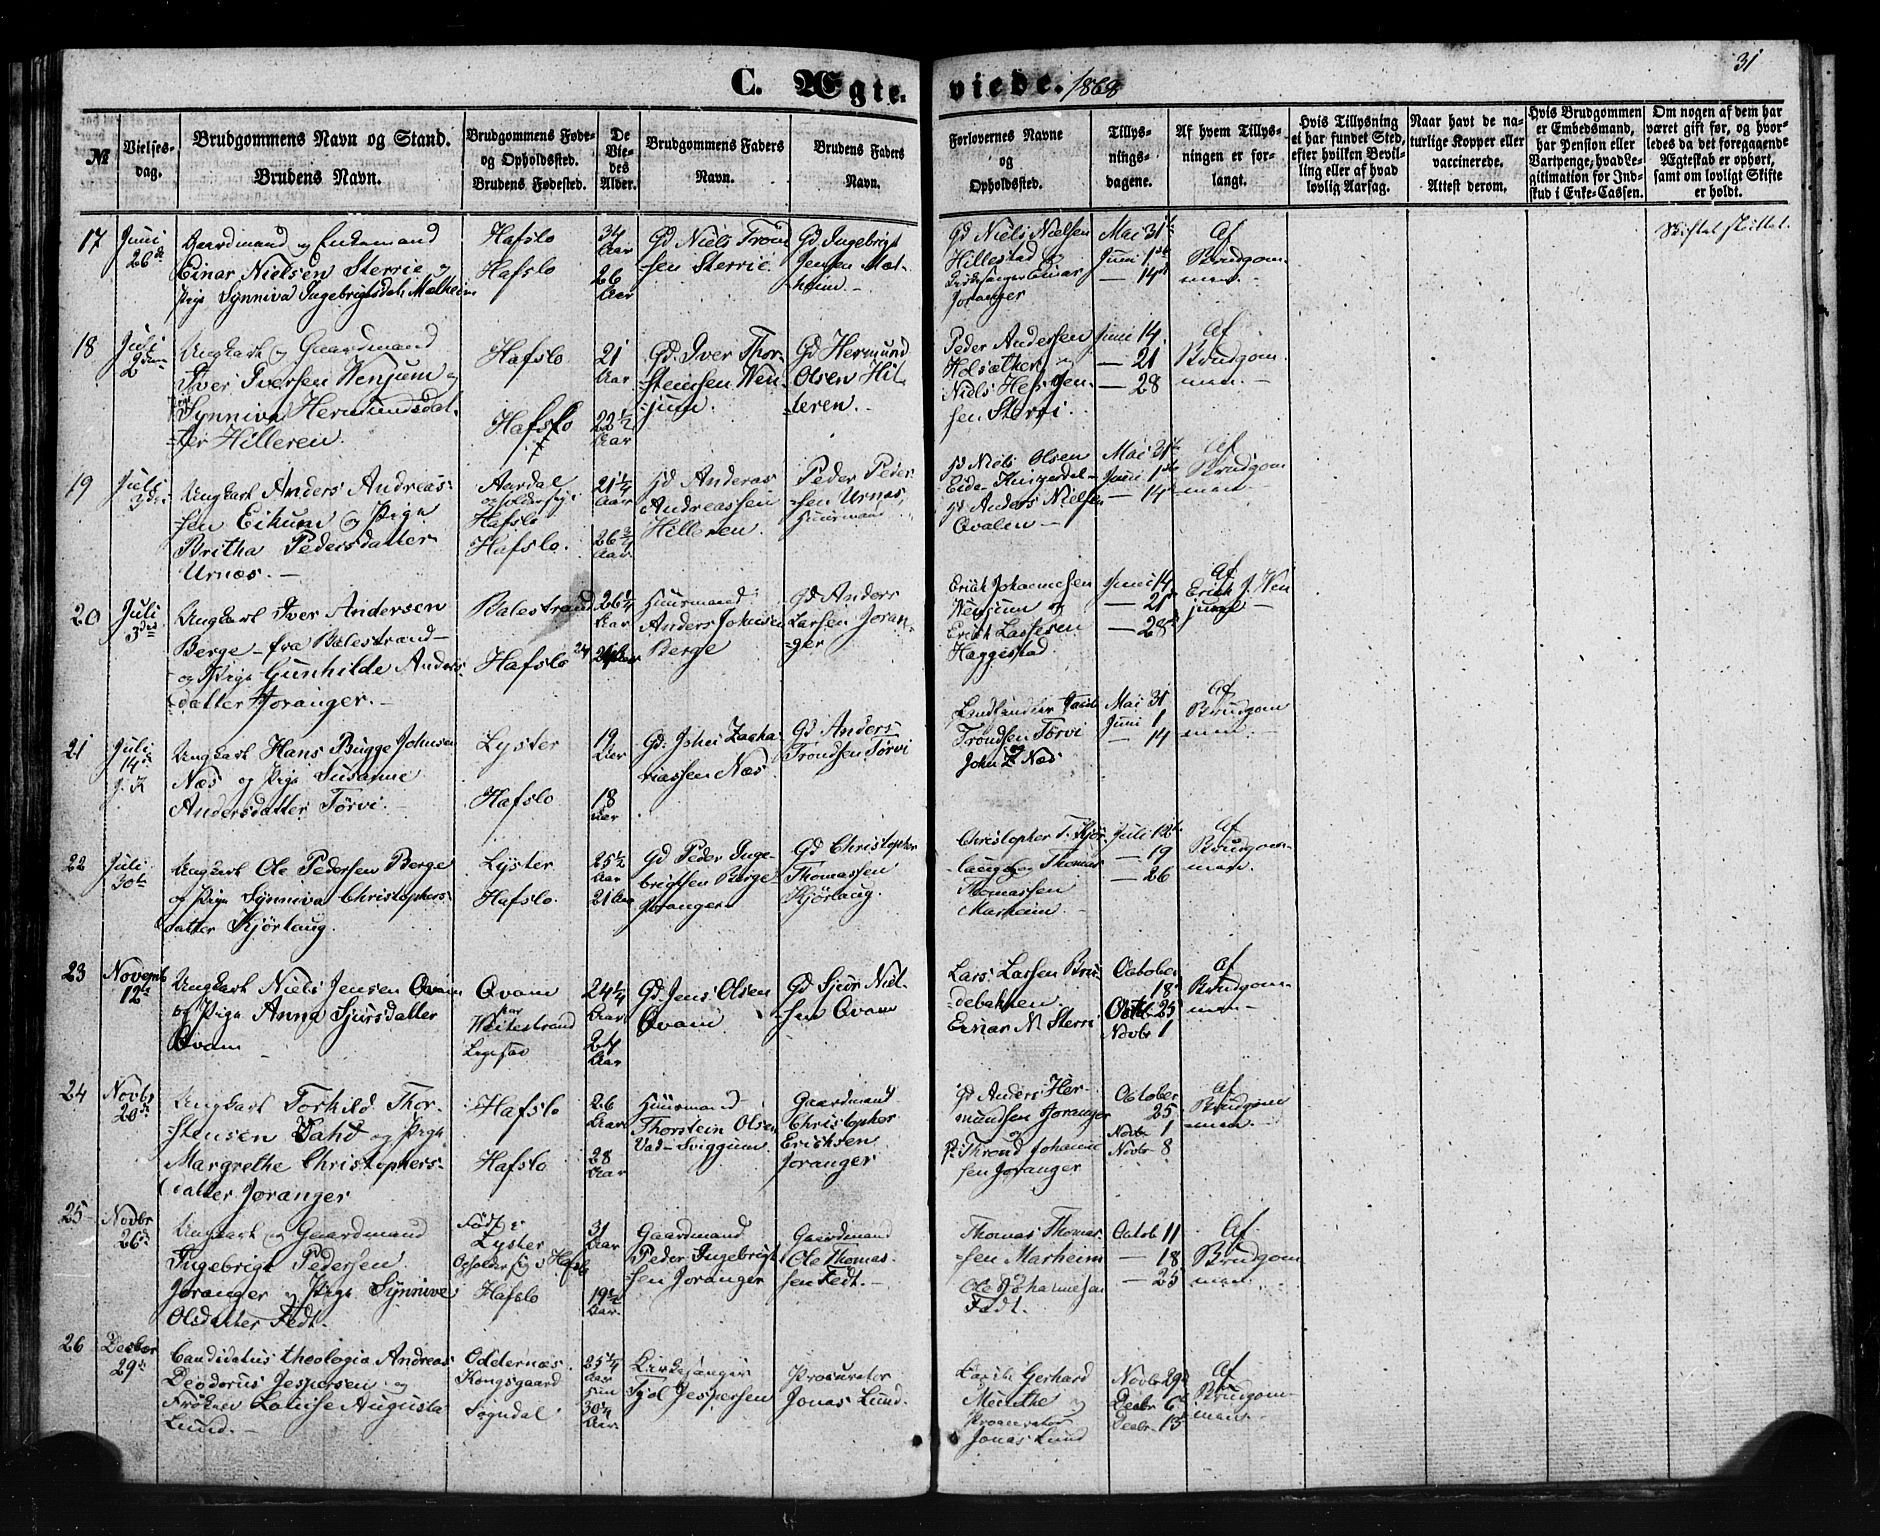 31
C. Ægte-
viede. 1868
№
Vielses-
dag.
Brudgommens Navn og Stand.
Brudens Navn.
BrudgommensFøde-
og Opholdssted.
Brudens Fødested.
De
Vie-
des
Alder.
Brudgommens Faders
Navn.
Brudens Faders
Navn.
Forlovernes Navne
og
Opholdssted.
Tillys-
nings-
dagene.
Af hvem Tillys-
ningen er for-
langt.
Hvis Tillysning
ei har fundet Sted,
efter hvilken Bevil-
ling eller af hvad
lovlig Aarsag.
Naar havt de na-
turlige Kopper eller
vaccinerede.
Attest derom.
Hvis Brudgommen
er Embedsmand,
har Pension eller
Vartpenge; hvad Le-
gitimation for Ind-
skud i Enke-Cassen.
Om nogen af dem har
været gift før, og hvor-
ledes da det foregaaende
Ægteskab er ophørt,
samt om lovligt Skifte
er holdt.
17
Juni
26de
Gaardmand og Enkemand
Einar Nielsen Sterrie og
Pige Synniva Ingebrigtsdatr Malheim
Hafslo
Hafslo
34
Aar
26
Aar
Gd Niels Trond
-sen Sterrie
Gd Ingebrigt
Jensen Mal-
heim.
Gd Niels Nielsen
Hillestad og
Kirkesanger Einar
Joranger
Mai 31te
Juni 1ste
— 14de
Af
Brudgom-
men.
Skiftet sluttet.
18
Juli
2den
Ungkarl og Gaardmand
Iver Iversen Venjum og
Pige Synniva Hermundsdat-
ter Hilleren.
Hafslo
Hafslo
21
Aar
22 1/2
Aar
Gd. Iver Thor-
steinsen Ven-
jum.
Gd Hermund
Olsen Hil-
leren.
Peder Andersen
Helsæther og
Niels
sen Sterri.
Juni 14.
— 21
— 28
Af
Brudgom-
men.
19
Juli
3die
Ungkarl Anders Andreas-
sen Eikum og Pige
Britha Pedersdatter
Urnæs.
Aardal
opholder sig i
Hafslo
Hafslo.
21 1/4
Aar
26 3/4
Aar
Gd Anderas
Andreassen
Hilleren
Peder Peder-
sen Urnæs,
Huusmand
Gd Niels Olsen
Eide
Gd Anders Nielsen
Qvalen
Mai 31te
Juni 1ste
— 14
Af
Brudgom-
men
20
Juli
3die
Ungkarl Iver Andersen
Berge fra Balestrand
og Pige Gunhilde Anders-
datter Joranger.
Balestrand
Hafslo
26 1/4
Aar
24
Huusmand
Anders Johnsen
Berge
Gd Anders
Larsen Joran-
ger
Erich Johannesen
Venjum og
Erich Lassesen
Haggestad
Juni 14
— 21
— 28
Af
Erich J. Ven
jum
21
Juli
14de
Ungkarl Hans Bugge Johnsen
Næs og Pige Susanne
Andersdatter Tørvi.
Lyster
Hafslo
19
Aar
18
Aar
Gd. John Zacha-
riassen Næs
Gd Anders
Trondsen Tørvi
Landhandler Jacob
Trondsen Tørvi
og
John Z Næs
Mai 31
Juni 1
— 14
Af
Brudgom
men.
22
Juli
30te
Ungkarl Ole Pedersen Berge
og Pige Synniva Christophers-
datter Kjørlaug.
Lyster
Hafslo.
25 1/2
Aar
21 Aar
Gd Peder Inge-
brigtsen Berge
Joranger
Gd Christopher
Thomassen
Kjørlaug.
Christopher T. Kjør-
laug og Thomas
Thomassen
Marheim
Juli 12te
— 19
— 26
Af
Brudgom-
men.
23
Novemb
12te
Ungkarl Niels Jensen Qvam
og Pige Anna Sjursdatter
Qvam
Qvam
paa
Veitestrand
Ligesaa
24 1/4
Aar
24
Aar
Gd. Jens Olsen
Qvam
Gd Sjur Niel-
sen Qvam
Lars Larsen Bru-
debakken.
Einar N Sterri
October
18
Octbr 25
Novbr 1
Af
Brudgom-
men
24
Novbr
20de
Ungkarl Torkild Thor-
stensen Vahd og Pige
Margrethe Christophers-
datter Joranger
Hafslo
Hafslo
26
Aar
28
Aar
Huusmand
Thorstein Olsen
Vad-Sviggum
Gaardmand
Christopher
Erichsen
Joranger
Gd Anders Her-
mundsen Joranger
og
Thrond Johanne
sen Joranger
October
25
Novbr 1
Novbr 8
Af
Brudgom
men.
25
Novbr
26de
Ungkarl og Gaardmand
Ingebrigt Pedersen
Joranger og Pige Synnive
Olsdatter Fedt.
Født i
Lyster
Opholder sig i Hafslo
Hafslo
31
Aar
19 1/2
Aar.
Gaardmand
Peder Ingebrigt
sen Joranger
Gaardmand
Ole Thomas-
sen Fedt.
Thomas Thomas-
sen Marheim
og
Ole Johannesen
Fedt.
Octob 11
— 18
— 25
Af
Brudgom
men.
26
Decber
29de
Candidatus theologia Andreas
Deodorus Jespersen og
Frøken Louise Augusta
Lund.
Oddernæs
Kongsgaard
Sogndal
25 1/4
Aar
hun
30 1/4
Aar.
Kirkesanger
Jespersen
Procurator
Jonas Lund.
Gerhard
Munthe og
Procurator
Jonas Lund
Novbr 29
Decbr 6
Decbr 13
Af
Brudgom-
men.